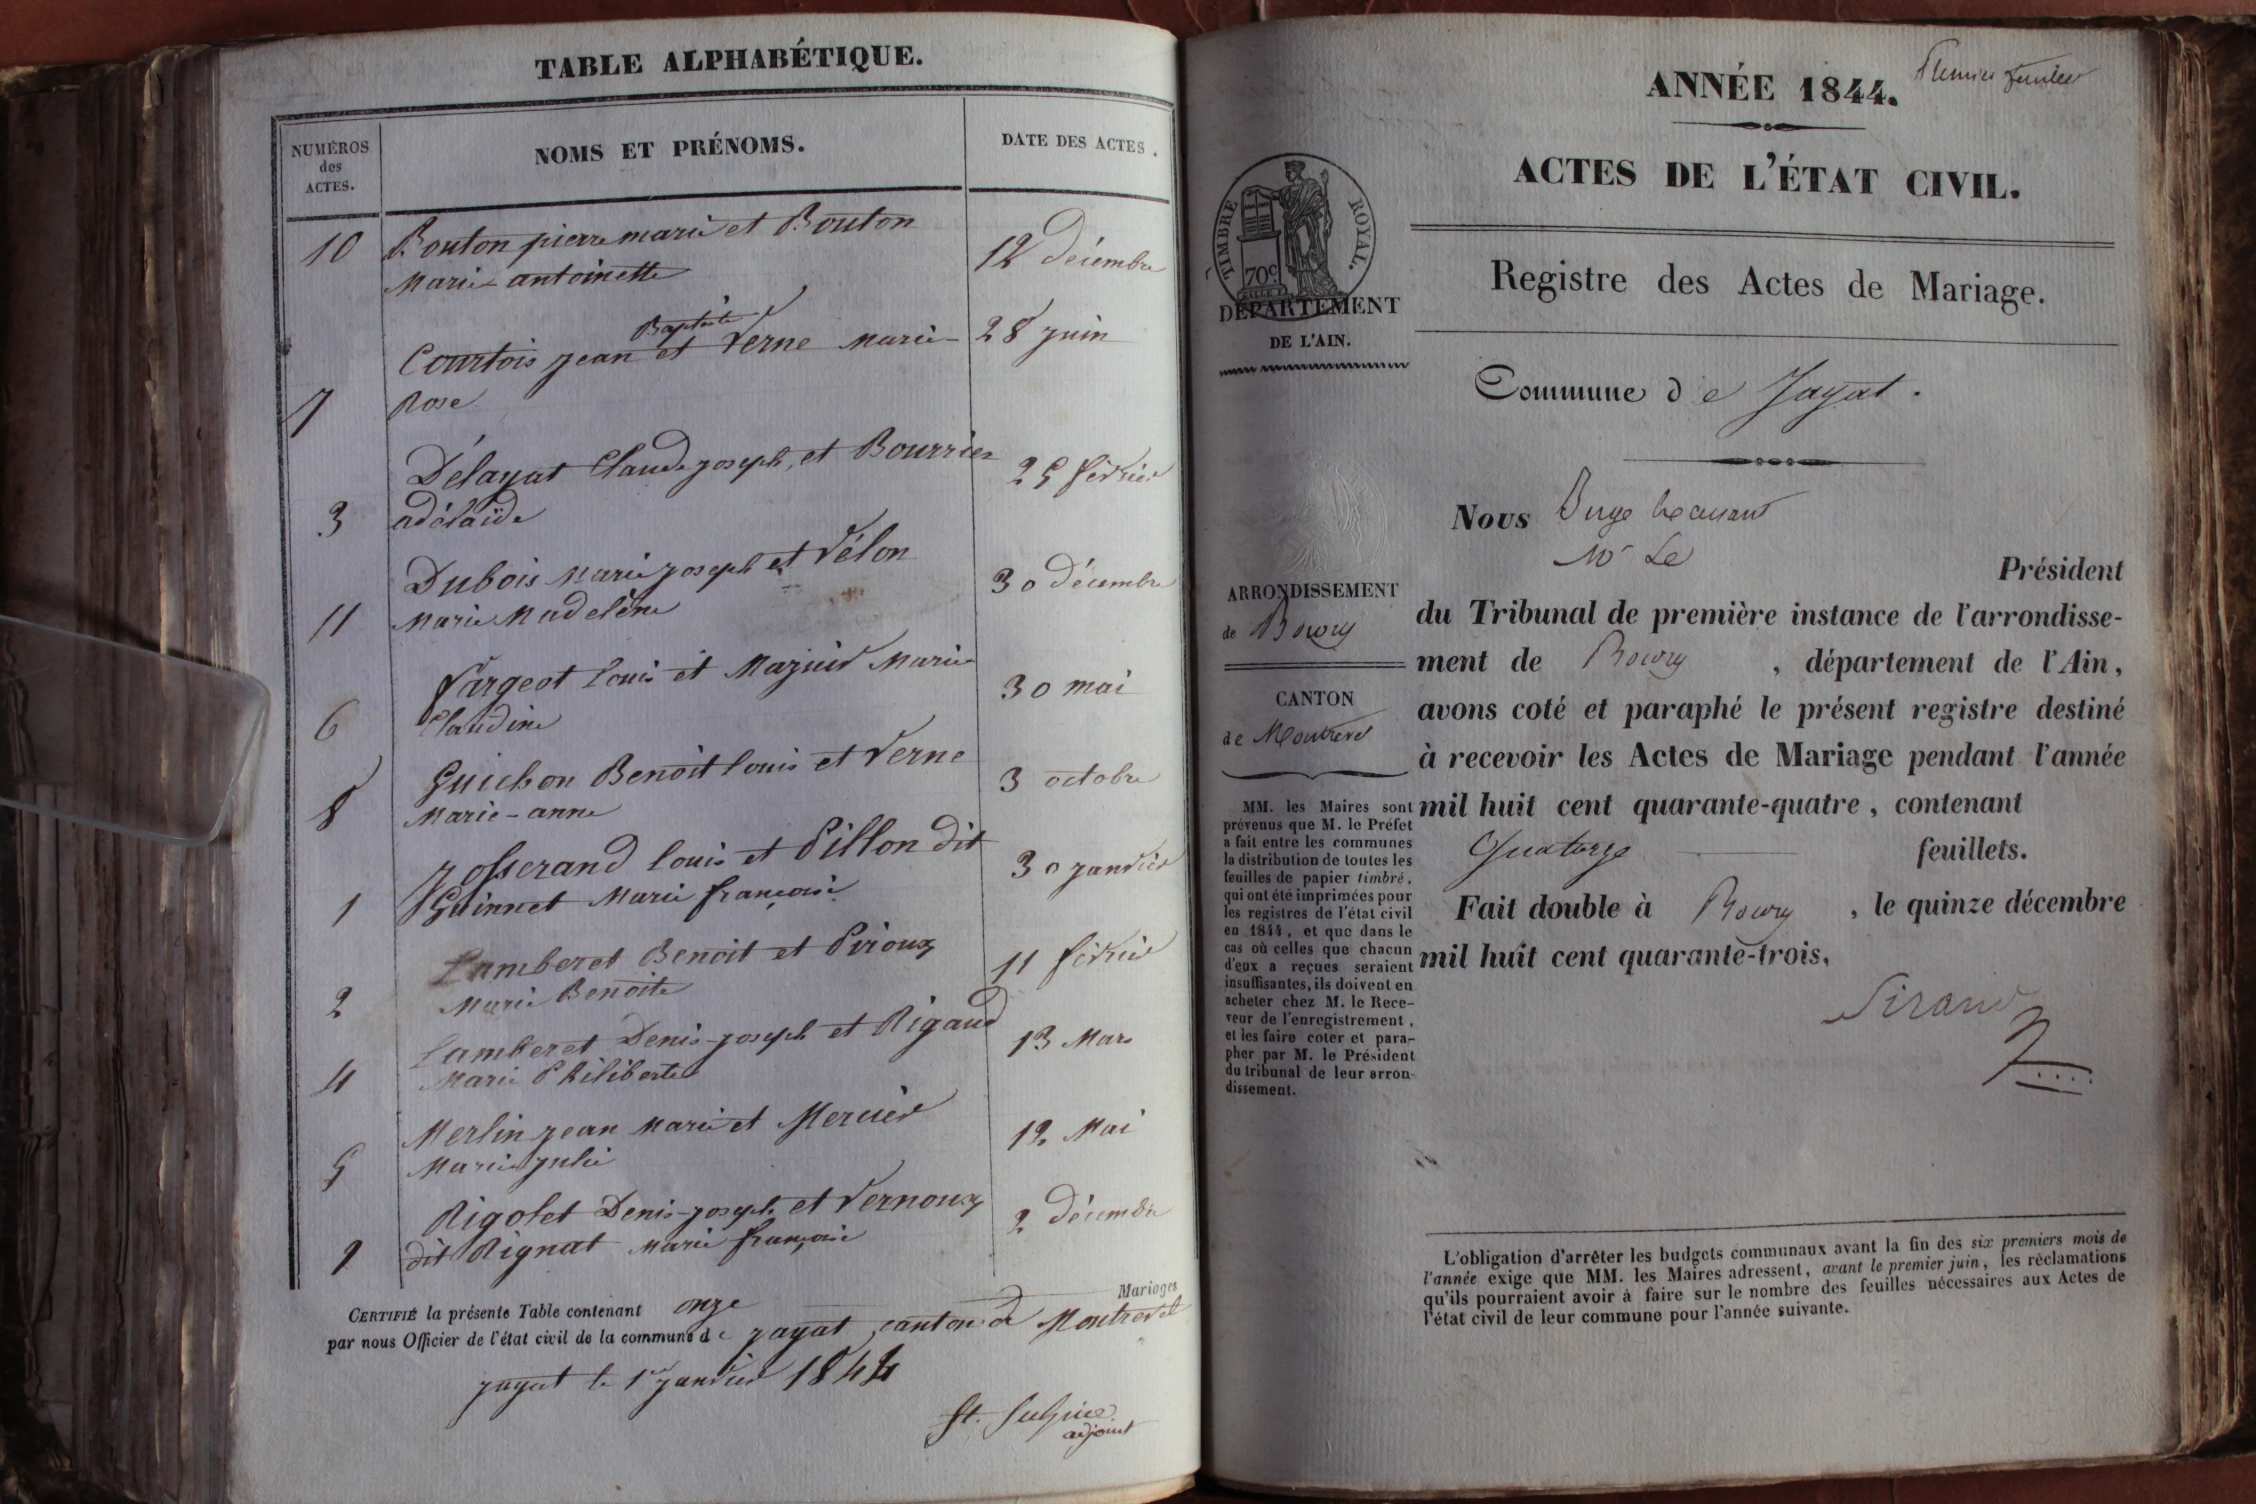 TABLE ALPHABÉTIQUE.
NUMÉROS
des
ACTES.
NOMS ET PRÉNOMS.
DATE DES ACTES.
10 Bouton pierre marie et Bouton
Marie antoinette
12 décembre
Baptiste
Courtois jean et Verne Marie
28 juin
7 Rose
Délayat Claude joseph, et Bourrier
25 février
3 adélaïde
Dubois Marie joseph et Vélon
30 décembre
11 Marie Madelène
fargeot louis et Mazuir Marie
30 mai
6 Claudine
Guichon Benoit louis et Verne
3 octobre
8 Marie-anne
josserand louis et Pillon dit
30 janvier
1 Guinnet Marie françoise
Lamberet Benoit et Piroux
11 février
2 Marie Benoite
Lamberet Denis-joseph et Rigaud
13 Mars
4 Marie Philiberte
Merlin jean marie et Mercier
12 Mai
5 Marie julie
Rigolet Denis-joseph et Vernoux
2 décembre
9 dit Rignat Marie françoise
CERTIFIÉ la présente Table contenant onze Mariages
par nous Officier de l'état civil de la commune de jayat canton de Montrevel
jayat le 1er janvier 1844
St. Sulpice
adjoint
Premier feuillet
ANNÉE 1844.
ACTES DE L'ÉTAT CIVIL.
TIMBRE ROYAL.
70c
DÉPARTEMENT
DE L'AIN.
Registre des Actes de Mariage.
Commune de Jayat.
Nous Juge
Mr Le
Président
ARRONDISSEMENT
de Bourg
CANTON
de Montrevel
du Tribunal de première instance de l'arrondisse-
ment de Bourg, département de l'Ain,
avons coté et paraphé le présent registre destiné
à recevoir les Actes de Mariage pendant l'année
mil huit cent quarante-quatre, contenant
Quatorze feuillets.
Fait double à Bourg, le quinze décembre
mil huit cent quarante-trois.
Sirand
MM. les Maires sont
prévenus que M. le Préfet
a fait entre les communes
la distribution de toutes les
feuilles de papier timbré,
qui ont été imprimées pour
les registres de l'état civil
en 1844, et que dans le
cas où celles que chacun
d'eux a reçues seraient
insuffisantes, ils doivent en
acheter chez M. le Rece-
veur de l'enregistrement,
et les faire coter et para-
pher par M. le Président
du tribunal de leur arron-
dissement.
L'obligation d'arrêter les budgets communaux avant la fin des six premiers mois de
l'année exige que MM. les Maires adressent, avant le premier juin, les réclamations
qu'ils pourraient avoir à faire sur le nombre des feuilles nécessaires aux Actes de
l'état civil de leur commune pour l'année suivante.